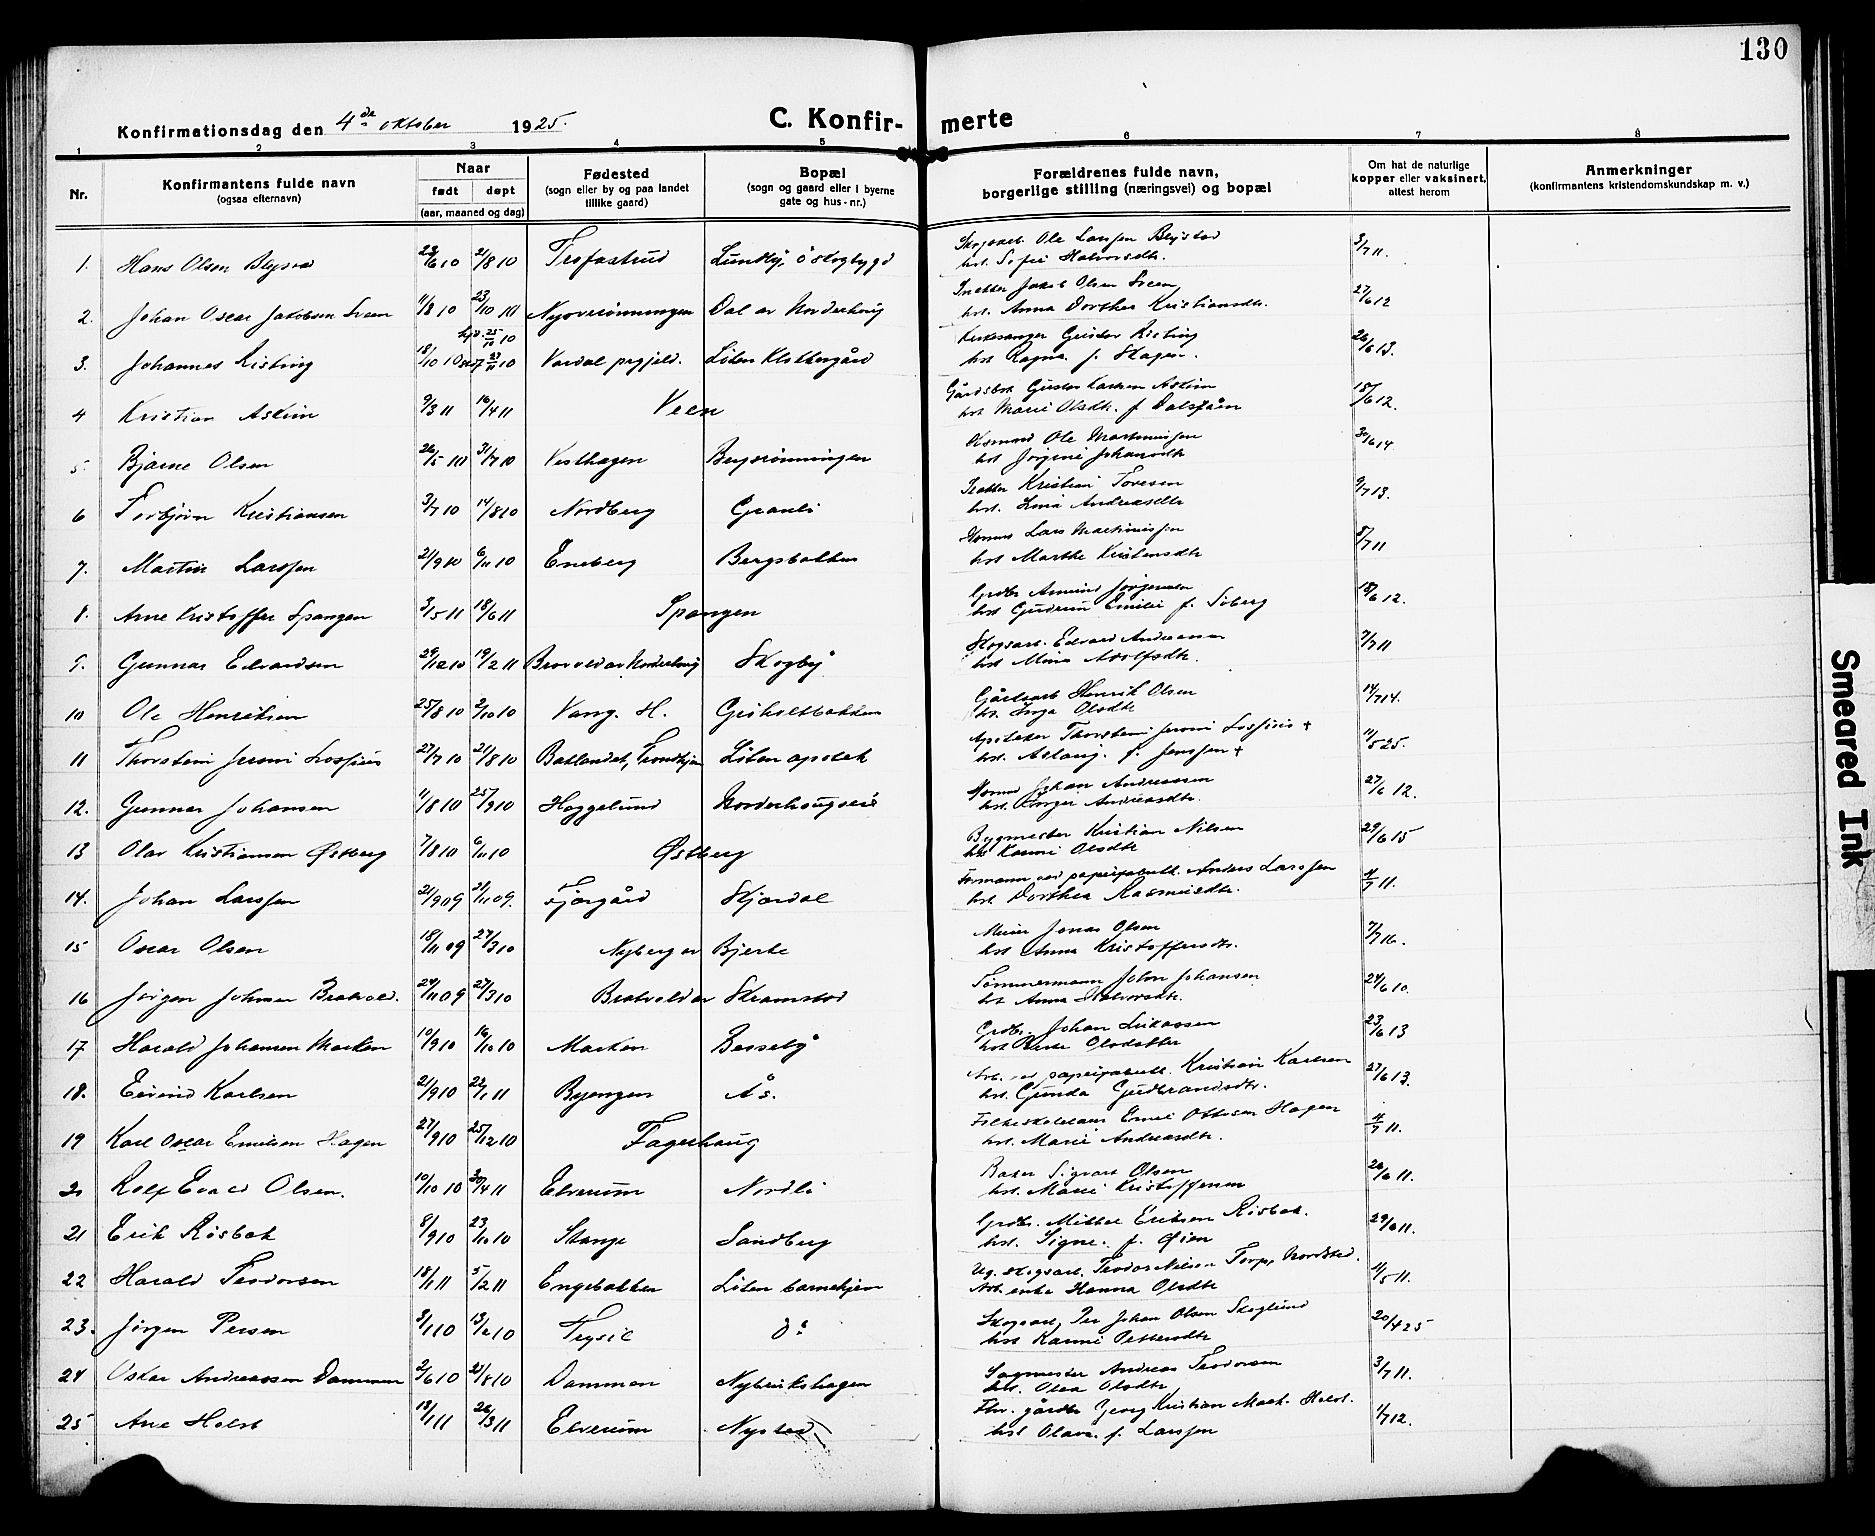 130
Konfirmationsdag den 4de oktober 1925.
C. Konfirmerte
1 2 3 4 5 6 7 8
Nr. Konfirmantens fulde navn (ogsaa efternavn) Naar født døpt (aar, maaned og dag) Fødested (sogn eller by og paa landet tillike gaard) Bopæl (sogn og gaard eller i byerne gate og hus-nr.) Forældrenes fulde navn, borgerlige stilling (næringsvei) og bopæl Om hat de naturlige kopper eller vaksinert, attest herom Anmerkninger (konfirmantens kristendomskundskap m. v.)
1. Hans Olsen 23/6 10 21/8 10 Ole Larsen
hst. Sofie Halvorsdtr. 3/7 11.
2. Johan Oscar Jakobsen Sveen 11/8 10 23/10 10 Dal av Norderhoug Jakob Olsen Sveen
hst. Anna Dorthea Kristiansdtr. 27/6 12
3. Johannes Risting 18/10 10 Vardal prgjeld. Løten Klokkergård Kirkesanger Gustav Risting
hst Ragna f. Skagen. 26/6 13.
4 Kristian Askim 9/3 11 16/4 11 Veen Gårdsbr. Gustav Askim
hst Marie Olsdtr. f. 18/6 12.
5. Bjarne Olsen 26/5 10 31/7 10 Vesthagen Bergsrønningen Ole Martinussen
hst Jørgine Johansdtr 30/6 14
6 Torbjørn Kristiansen 3/7 10 14/8 10 Nordberg Granli Kristian Toresen
hst. Lina Andreasdtr 9/7 13.
7. Martin Larssen 21/9 10 6/11 10 Eneberg Bergsbakken Lars Martinussen
hst Marthe Kristensdtr 8/7 11
8. Arne Kristoffer Spangen 3/5 11 18/6 11 Spangen Grdbr Amund Jørgensen
hst Gudrun Emilie f. Soberg 18/6 12.
9. Gunnar Edvardsen 29/12 10 19/2 11 Brovold av Norderhoug Skogby Skogsarb. Edvard Andreassen
hst. Mina Adolfsdtr. 7/7 11
10 Ole Henriksen 25/8 10 2/10 10 Vang. H. Grisholtbakken Gårdsarb Henrik Olsen
hst. Inga Olsdtr 14/7 14.
11 Thorstein Jeroni Lossius 27/7 10 21/8 10 Baklandet, Trondhjem Løten apotek Apoteker Thorstein Jeroni Lossius +
hst. Aslaug. f. Jenssen + 11/5 25.
12. Gunnar Johansen 11/8 10 25/9 10 Heggelund Norderhougseie Johan Andreassen
hst. Andreasdtr. 27/6 12.
13 Olav Kristiansen Østberg 7/8 10 6/11 10 Østberg Bygmester Kristian Nilsen
hst Karine Olsdtr 29/6 15
14. Johan Larssen 21/9 09 21/11 09. Fjørgård Skjærdal Formann ved papirfabrikk. Anders Larssen
hst. Dorthea Rasmusdtr. 4/7 11.
15 Oscar Olsen 18/11 09 27/3 10 Nyberg av Bjerke Jonas Olsen
hst Anna Kristoffersdtr. 7/7 16.
16 Jørgen Johnsen Bratvold. 24/11 09 27/3 10 Bratvold av Skramstad Tømmermann John Johansen
hst Anna Halvorsdtr. 24/6 10.
17 Harald Johansen Marken 10/9 10 16/10 10 Marken Basseby Grdbr. Johan Lukassen
hst Olsdatter 23/6 13
18. Eivind Karlsen 21/9 10 22/1 11 Byengen Ås. Arb. ved papirfabrikk. Kristian Karlsen
hst. Gunda Gudbrandsdtr. 27/6 13.
19 Karl Oscar Emilsen Hagen 27/9 10 25/12 10 Fagerhaug Emil Ottesen Hagen
hst. Marie Andreasdtr. 4/7 11.
20 Rolf Evald Olsen. 10/10 10 30/4 11 Elverum Nordli Baker Sigvart Olsen
hst. Marie Kristoffersen 26/6 11.
21 Erik Risbak 8/9 10 23/10 10 Stange Sandberg Grdbr. Mikkel Eriksen Risbak.
hst. Signe. f. Øien 29/6 11.
22 Harald Teodorsen 18/1 11 5/2 11 Engebakken Løten barnehjem Ug. skogsarb. Teodor Nilsen Torp, Nordstad.
enke Hanna Olsdtr 11/5 11.
23. Jørgen Persen 3/1 10 13/2 10 Trysil do Skogsarb. Per Johan Olsen Skoglund
hst Karine Pettersdtr 20/4 25
24 Oskar Andreassen Dammen 2/6 10 21/8 10 Dammen Nybrukshagen Sagmester Andreas Teodorsen
hst. Olea Olsdtr 3/7 11.
25 Ane Holst 13/1 11 26/3 11 Elverum Nystad Fhv. gårdbr Georg Kristian Mack. Holst.
hst Olava. f. Larssen 1/7 12.
Smeared Ink